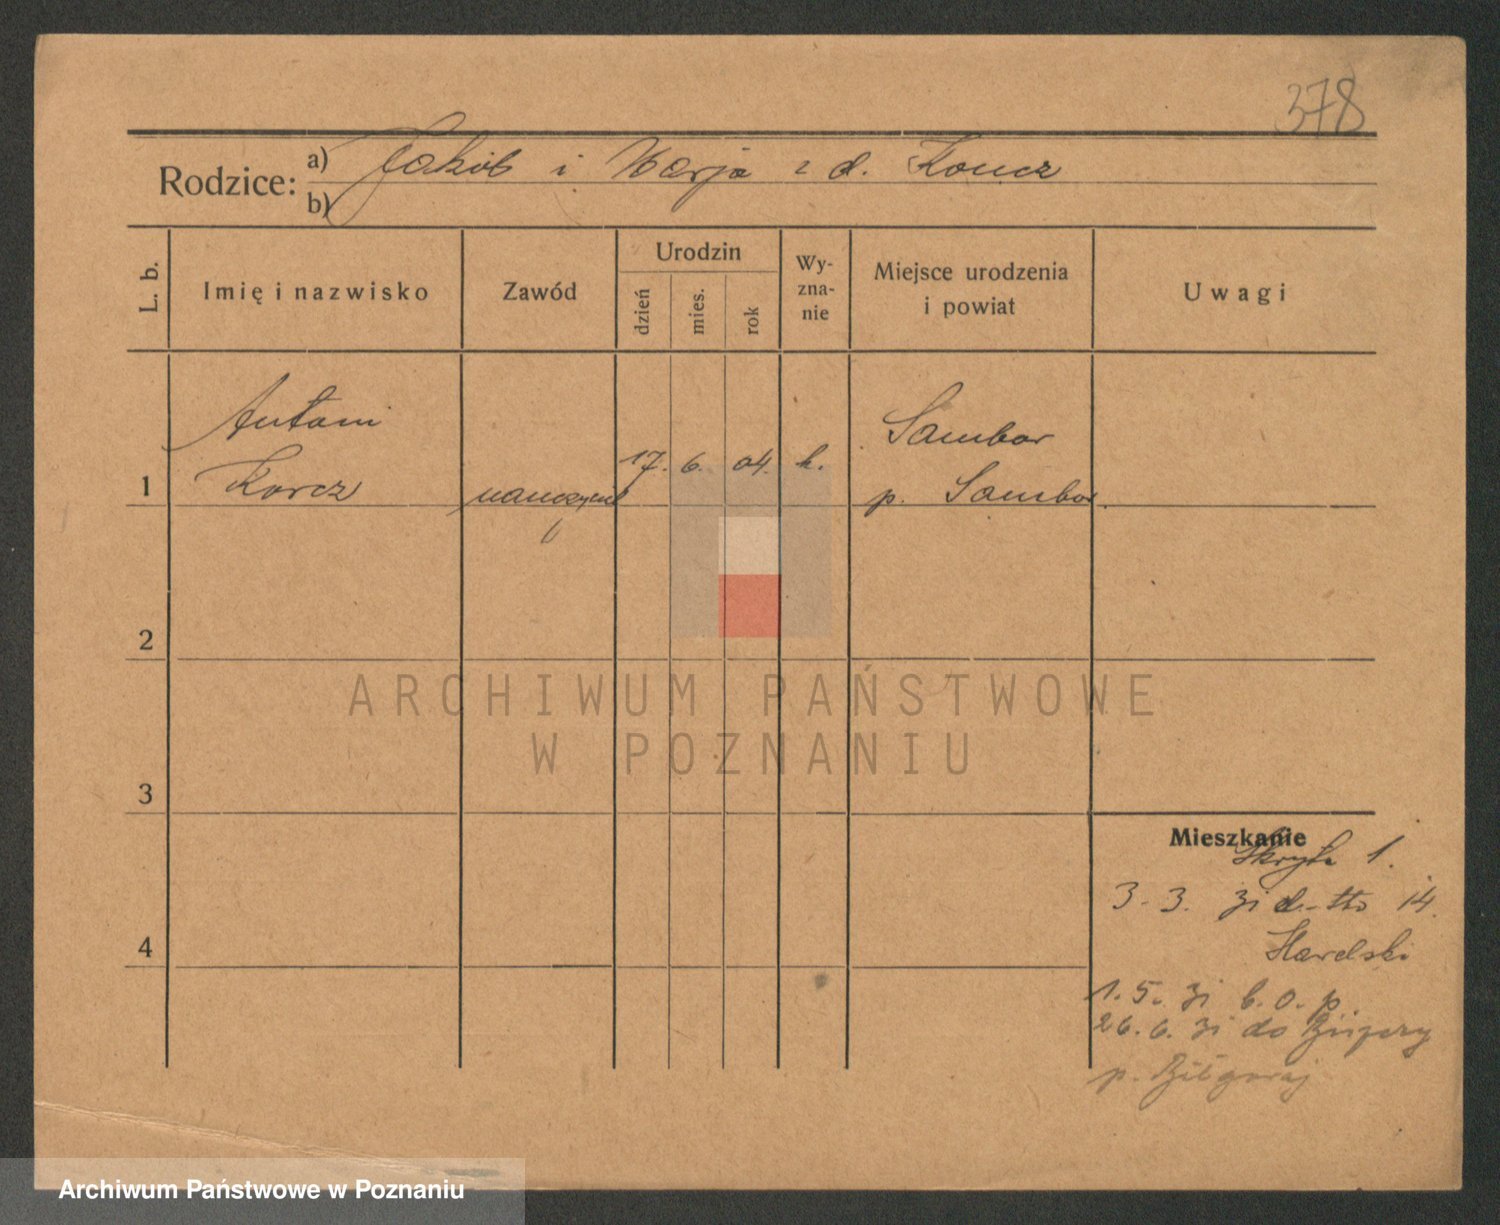 378
Rodzice: a) Jakób i Marja z d. Koncz
b)
L. b. Imię i nazwisko Zawód Urodzin dzień mies. rok Wy- zna- nie Miejsce urodzenia i powiat Uwagi
Antoni Sambor
1 Korcz nauczyciel 17. 6. 04. k. p. Sambor
2
ARCHIWUM PAŃSTWOWE
W POZNANIU
3
Mieszkanie
Skryta 1.
3. 3. 31 14.
4
1. 5. 31 b. o. p.
26. 6. 31 do
p. Biłgoraj
Archiwum Państwowe w Poznaniu